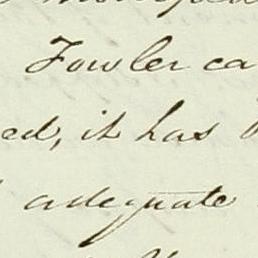 Fowler ca
ed, it has
adequate